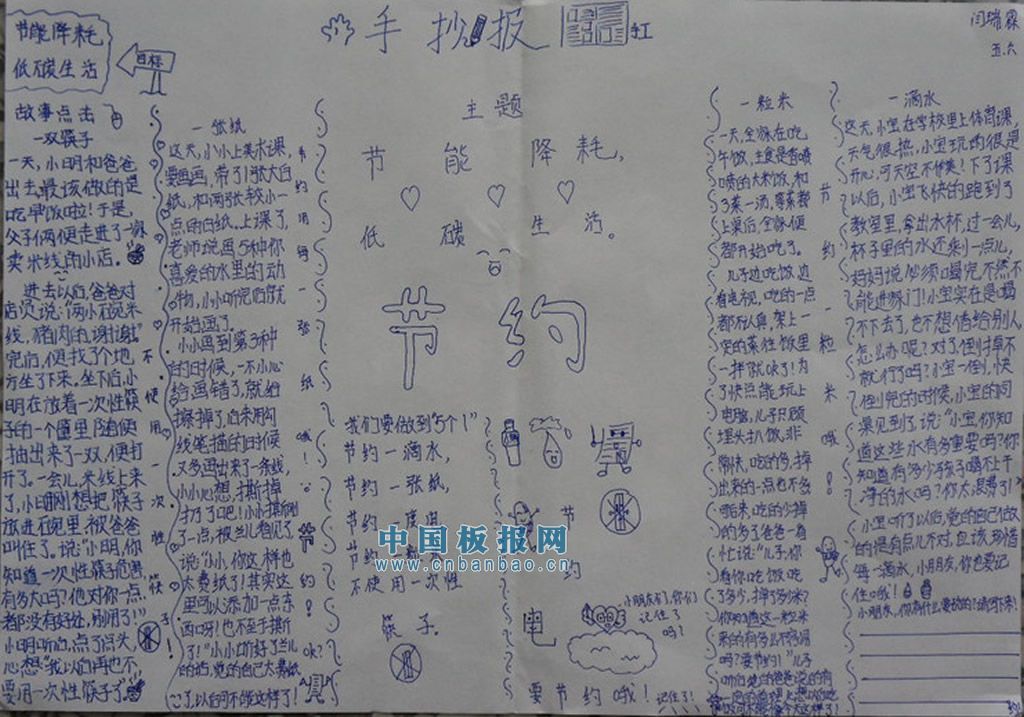 节能降耗
低碳生活
目标
手抄报
闫瑞霖
五.六
主题
节能降耗，
低碳生活。
节约
故事点击
一双筷子
一天，小明和爸爸
出去，最该做的是
吃早饭啦！于是，
父子俩便走进了一家
卖米线的小店。
进去以后，爸爸对
店员说：“俩小碗米
线，猪肉的，谢谢！”
完后，便找了个地
方坐了下来，坐下后，小
明在放着一次性筷
子的一个匣里随便
抽出来了一双，便打
开了。一会儿，米线上来
了，小明刚想把筷子
放进在碗里，被爸爸
叫住了，说：“小明，你
知道一次性筷子危害
有多大吗？他对你一点
都没有好处，别用了！”
小明听后，点了点头，
心想“我以后再也不
要用一次性筷子了”
不使用一次性筷子！
一张纸
这天，小小上美术课，
要画画，带了1张大白
纸，和两张较小一
点的白纸。上课了，
老师说画5种你
喜爱的水里的动
物，小小听完后就
开始画了。
小小画到第3种
的时候，一不小心
给画错了，就给
擦掉了，后来用勾
线笔描的时候
又多画出来了一条线，
小小心想，撕掉
了一点，被
说：“小小，你这样也
太费纸了！其实这
里可以添加一点东
西呀！也不至于撕
了！”小小听好了
的话，觉的自己太费纸
了，以后可不能这样了！
节约用每一张纸哦！
我们要做到“5个1”
节约一滴水，
节约一张纸，
节约一度电
节约一粒
不使用一次性
筷子。
节约
电
小朋友们，你们
记住了
吗？
要节约哦！记住了！
一粒米
一天，全家在吃
午饭，主食是香喷
喷的大米饭，和
3菜一汤，等菜都
上桌后，全家便
都开始吃了。
儿子边吃饭，边
看电视，吃的一点
都不认真，架上一
突的菜往饭里
一拌就
了快点能玩上
电脑，儿子只顾
埋头扒饭，非
常快，吃的多，掉
出来的一点也不多
吃的少掉
的多了爸爸一看
忙说：“儿子，你
看你吃饭吃
了多少，掉了多少米？
你知道这一粒米
来的有多么不容易
吗？要节约！”儿子
节约一粒米哦！
一滴水
这天，小宝在学校里上体育课，
天气很热，小宝玩的很是
开心，可天空不作美！下了课
以后，小宝飞快的跑到了
教室里，拿出水杯，过一会儿，
杯子里的水还剩一点儿，
妈妈说必须喝完不然不
能进家门！小宝实在是喝
不下去了，也不想借给别人，
怎么办呢？对了，倒掉不
就行了吗？小宝一倒，快
倒完的时候，小宝的同
桌见到了，说：“小宝，你知
道这些水有多重要吗？你
知道有多少孩子喝不上干
净的水吗？你太浪费了！”
小宝听了以后，觉的自己做
的是有点儿不对，应该珍惜
每一滴水，小朋友，你也要记
住哦！
小朋友，你有什么要说的？请写下来！
中国板报网
www.cnbanbao.cn